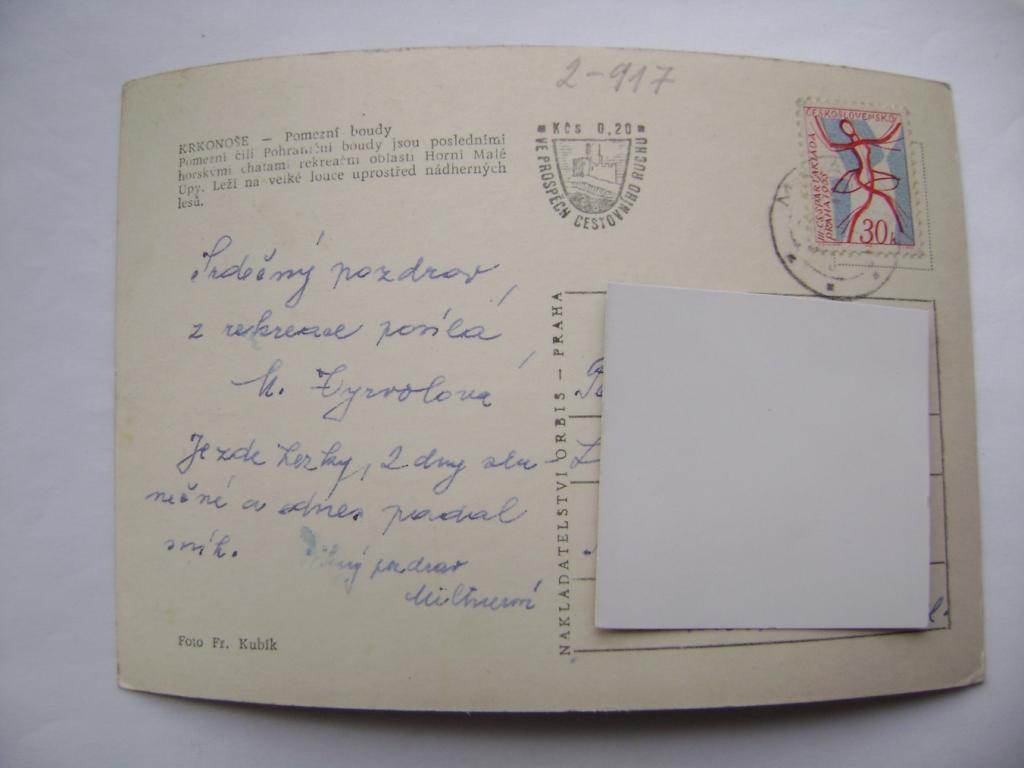 2-917
KRKONOŠE — Pomezní boudy
Pomezní čili Pohraniční boudy jsou posledními
horskými chatami rekreační oblasti Horní Malé
Úpy. Leží na velké louce uprostřed nádherných
lesů.
Kčs 0,20
VE PROSPĚCH CESTOVNÍHO RUCHU
ČESKOSLOVENSKO
PRAHA 1965
30h
Srdečný pozdrav
z rekreace posílá
Je zde hezky, 2 dny slu-
nečné a dnes padal
sníh.
pozdrav
NAKLADATELSTVÍ ORBIS — PRAHA
Foto Fr. Kubík